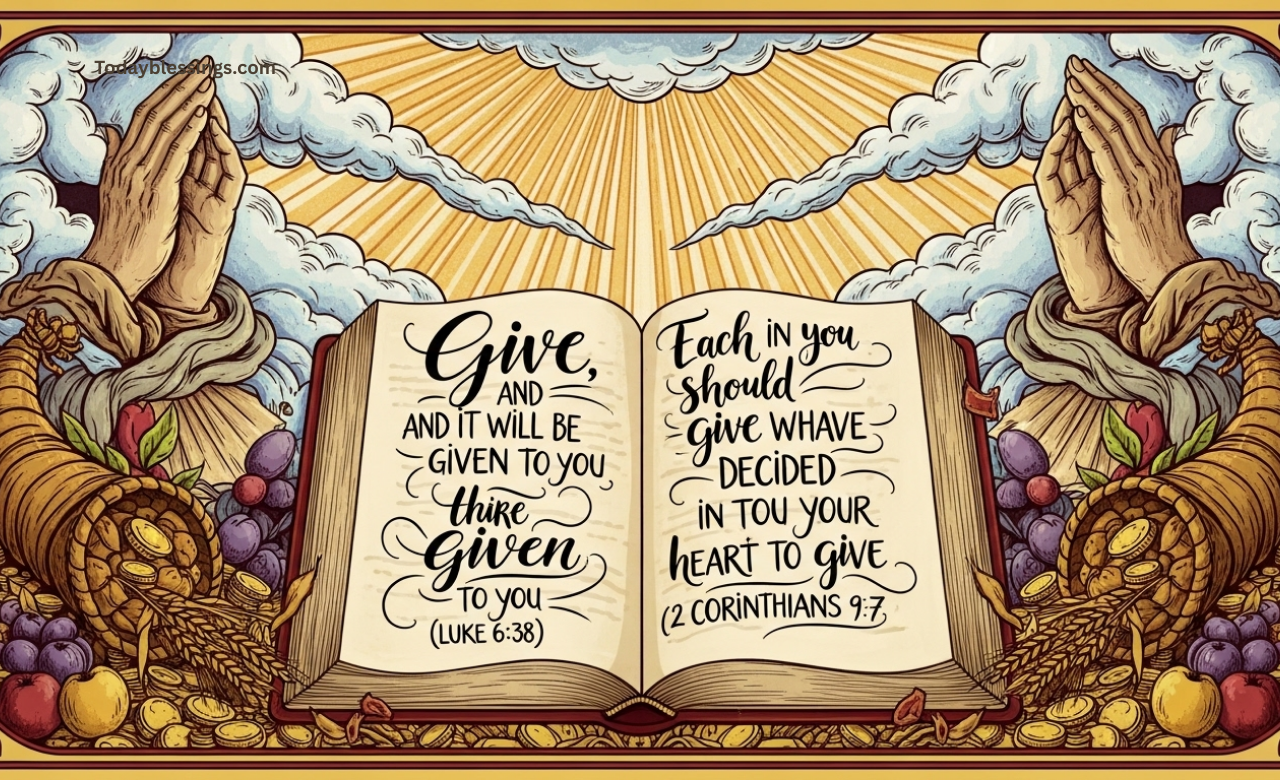 Todayblessings.com
Give,
AND
AND iT WiLL BE
GiVEN TO YOU
thire
Given
TO YOU
(LUKE 6:38)
Each iN you
should
give WHAVE
DECiDED
iN TOU YOUR
hEART TO giVE
(2 CORiNTHIANS 9:7,